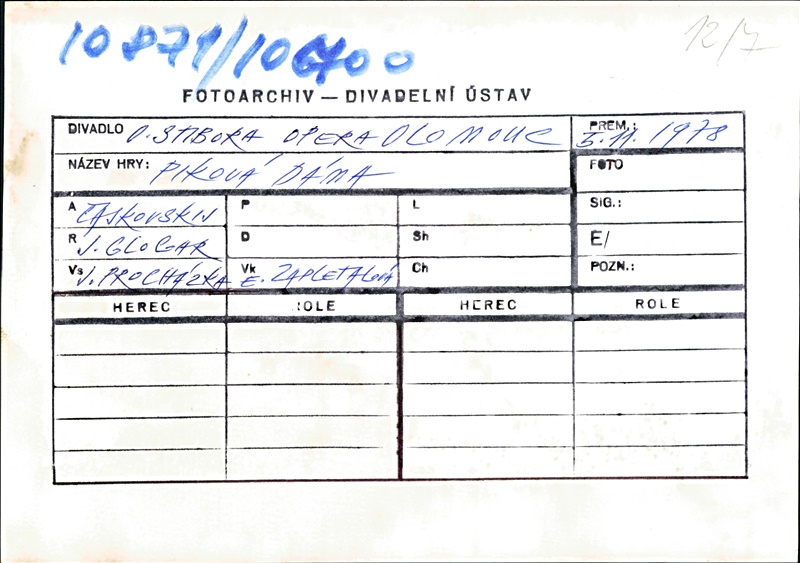 12/7
FOTOARCHIV — DIVADELNÍ ÚSTAV
DIVADLO O. STIBORA OPERA OLOMOUC PREM.: 5.11. 1978
NÁZEV HRY: PIKOVÁ DÁMA FOTO
A ČAJKOVSKIJ P L SIG.:
R J. GLOGAR D Sh E/
Vs J. PROCHÁZKA Vk E. ZAPLETALOVÁ Ch POZN.:
HEREC ROLE HEREC ROLE